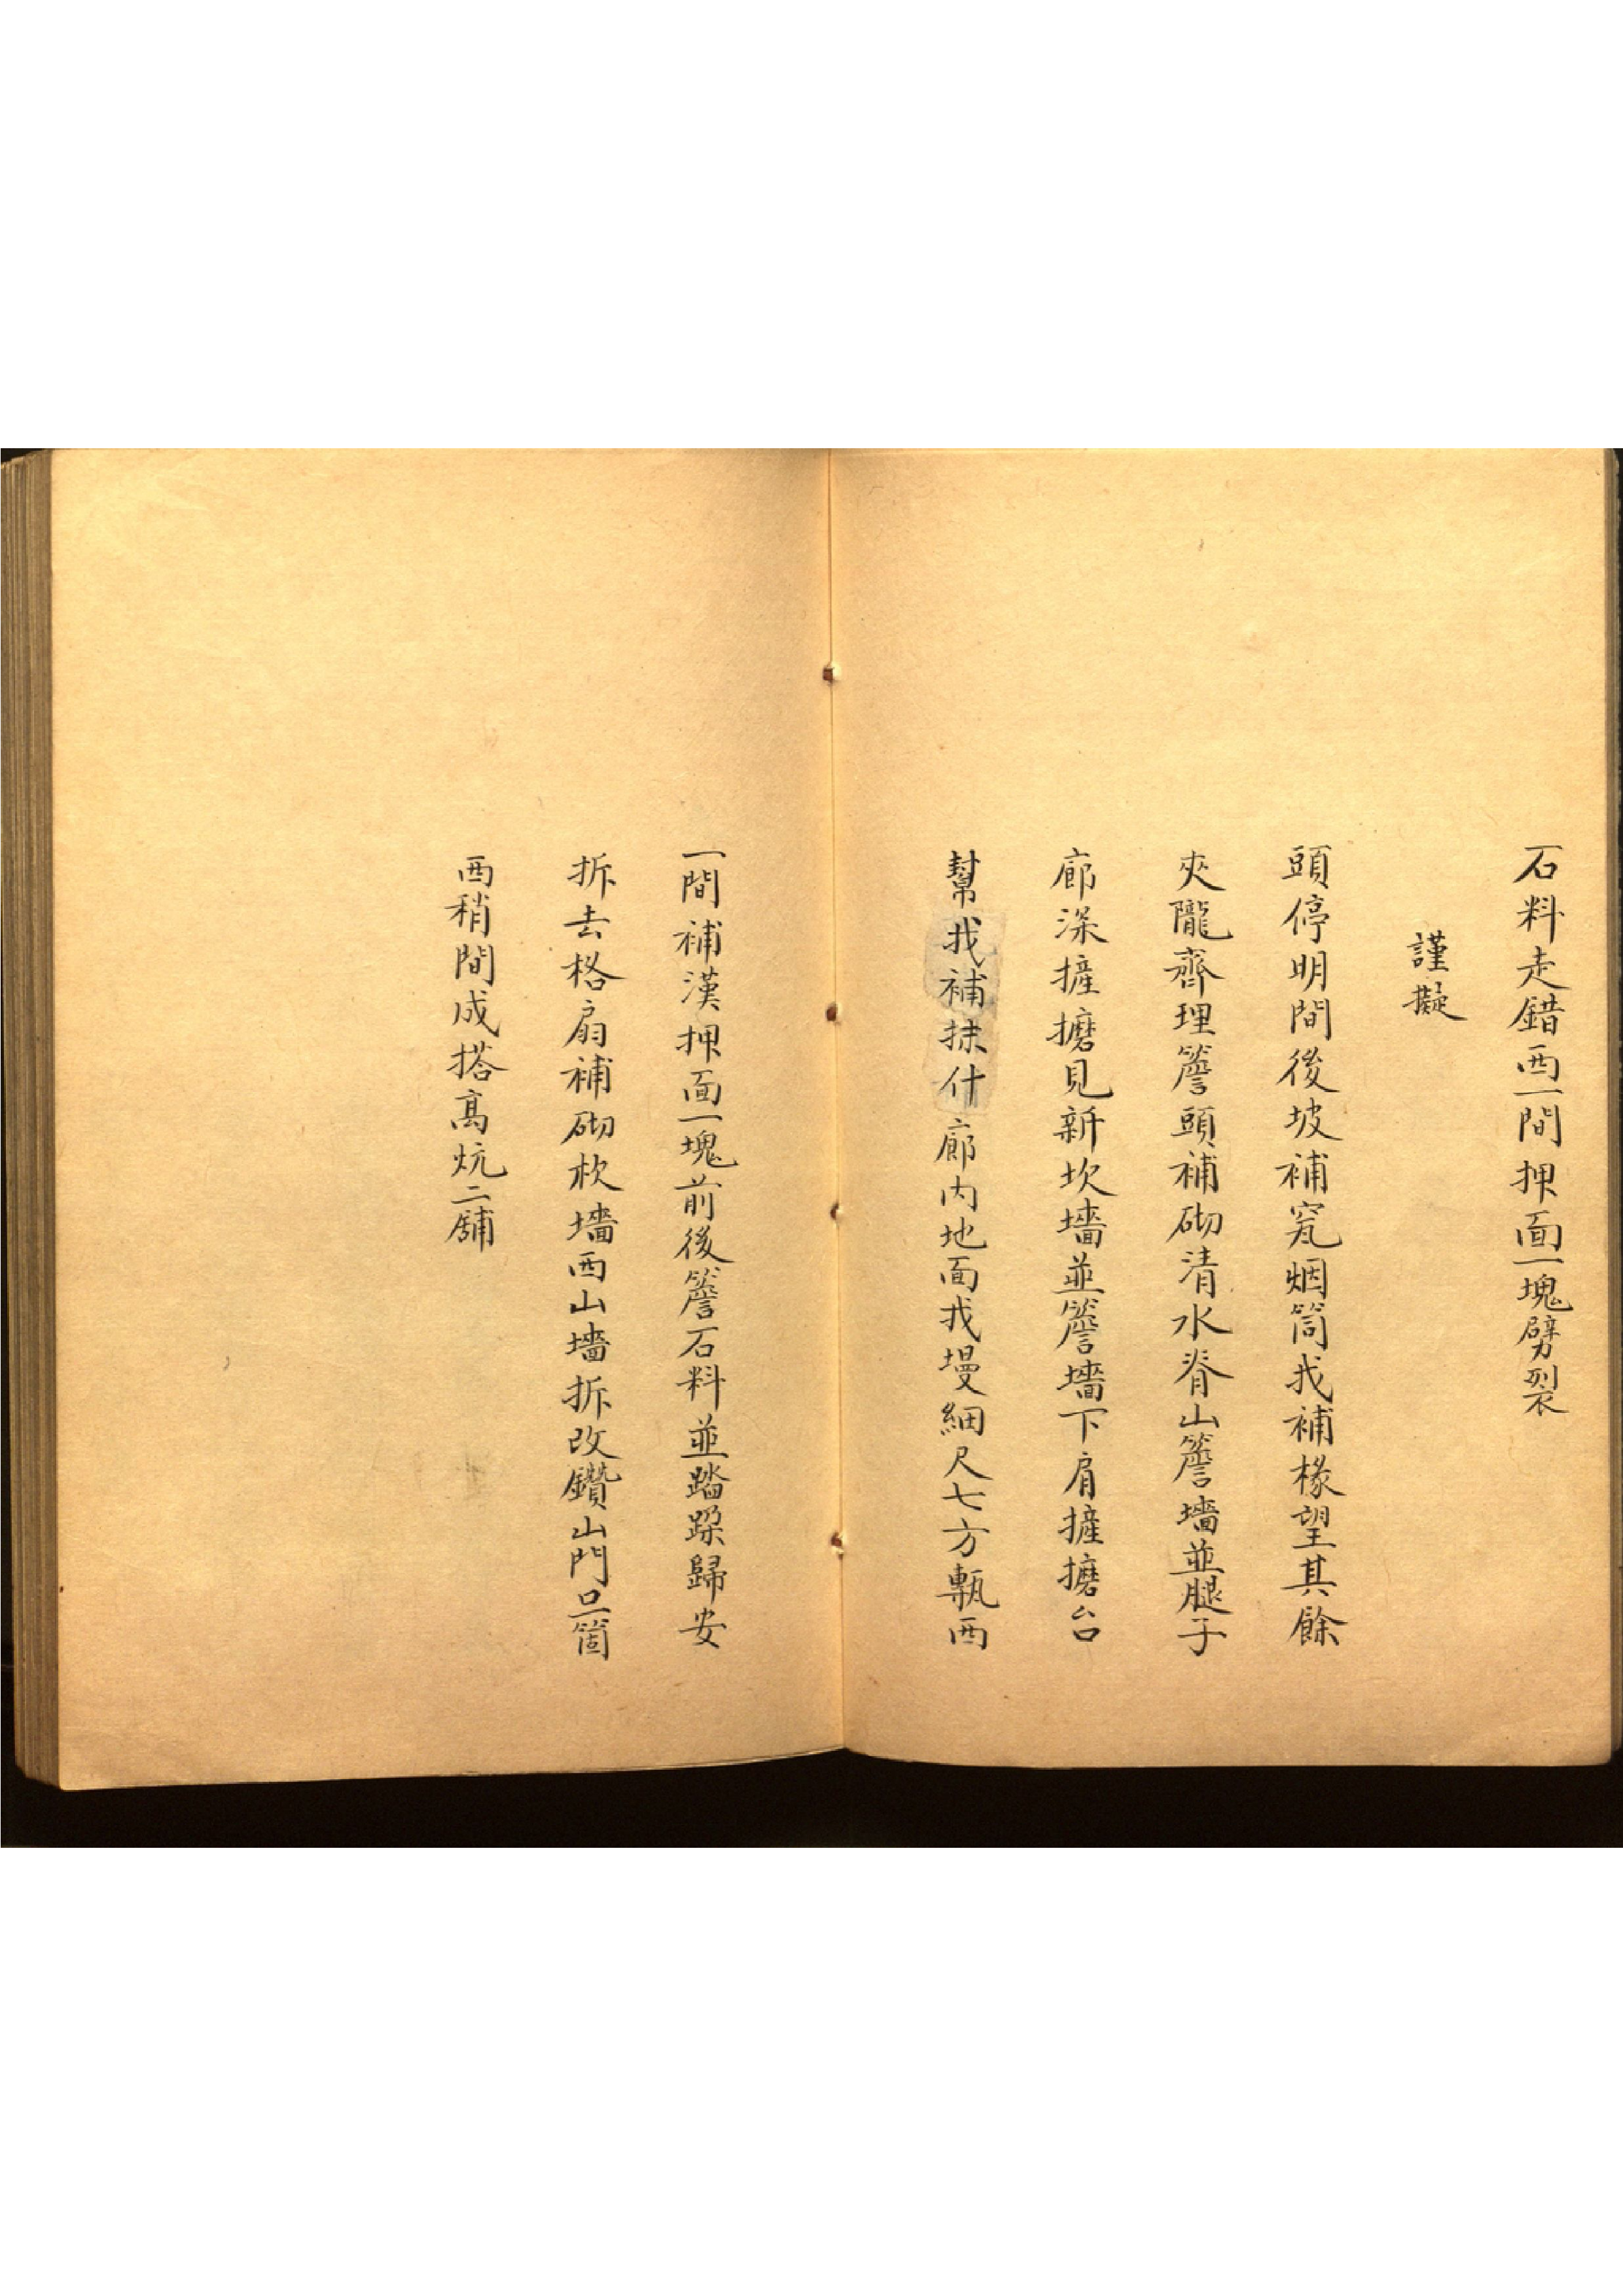 石料走錯西一間押面一塊劈裂
謹擬
頭停明間後坡補窊烟筒找補椽望其餘
夾隴齊理簷頭補砌清水脊山簷墻並腿子
廊深摌磨見新坎墻並簷墻下肩摌磨台
幫找補抹什廊内地面找墁細尺七方甎西
一間補漢押面一塊前後簷石料並踏跺歸安
拆去格扇補砌杴墻西山墻拆改鑽山門口一箇
西稍間成搭高炕二舖